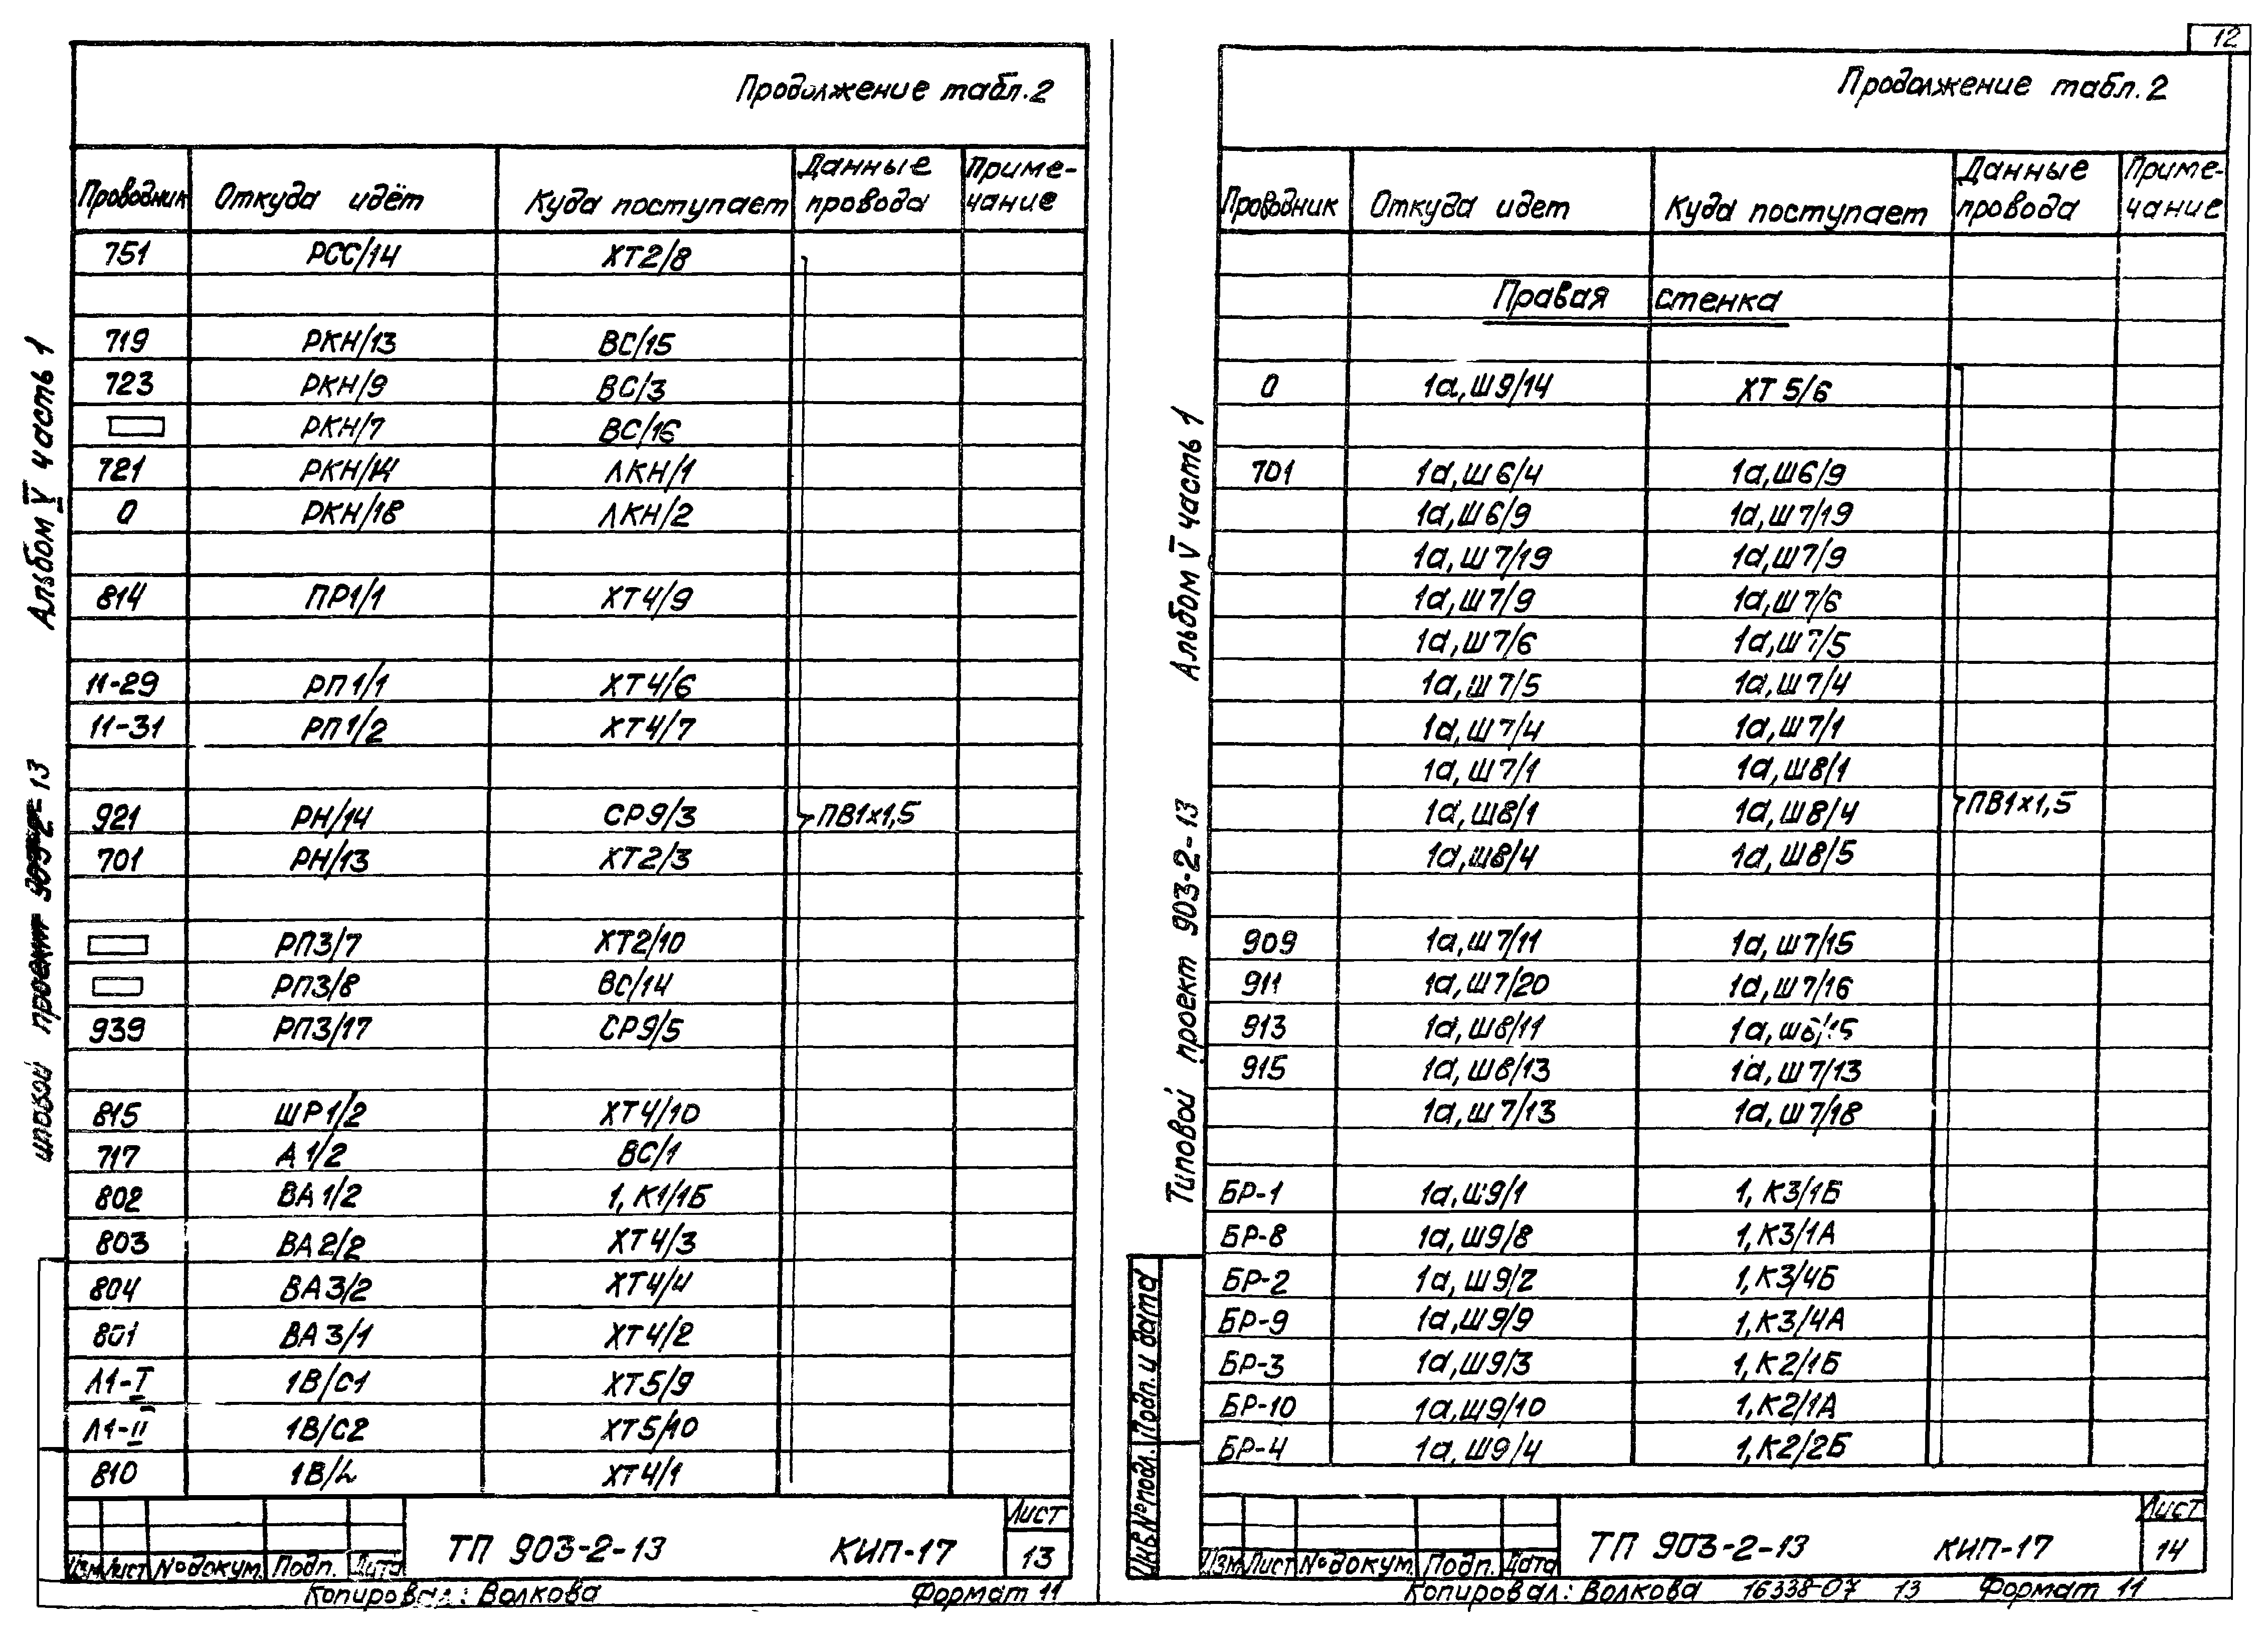 12
Продолжение табл.2
Проводник Откуда идёт Куда поступает Данные провода Приме-чание
751 РСС/14 ХТ2/8
719 РКН/13 ВС/15
723 РКН/9 ВС/3
РКН/7 ВС/16
721 РКН/14 ЛКН/1
0 РКН/18 ЛКН/2
814 ПР1/1 ХТ4/9
11-29 РП1/1 ХТ4/6
11-31 РП1/2 ХТ4/7
921 РН/14 СР9/3 ПВ1х1,5
701 РН/13 ХТ2/3
РП3/7 ХТ2/10
РП3/8 ВС/14
939 РП3/17 СР9/5
815 ШР1/2 ХТ4/10
717 А1/2 ВС/1
802 ВА1/2 1, К1/1Б
803 ВА2/2 ХТ4/3
804 ВА3/2 ХТ4/4
801 ВА3/1 ХТ4/2
Л1-I 1В/С1 ХТ5/9
Л1-II 1В/С2 ХТ5/10
810 1В/L ХТ4/1
Альбом V часть 1
проект 903-2-13
Изм Лист № докум. Подп. Дата
ТП 903-2-13 КИП-17
Лист
13
Копировал: Волкова Формат 11
Продолжение табл.2
Проводник Откуда идет Куда поступает Данные провода Приме-чание
Правая стенка
0 1а,Ш9/14 ХТ5/6
701 1а,Ш6/4 1а,Ш6/9
1а,Ш6/9 1а,Ш7/19
1а,Ш7/19 1а,Ш7/9
1а,Ш7/9 1а,Ш7/6
1а,Ш7/6 1а,Ш7/5
1а,Ш7/5 1а,Ш7/4
1а,Ш7/4 1а,Ш7/1
1а,Ш7/1 1а,Ш8/1
1а,Ш8/1 1а,Ш8/4 ПВ1х1,5
1а,Ш8/4 1а,Ш8/5
909 1а,Ш7/11 1а,Ш7/15
911 1а,Ш7/20 1а,Ш7/16
913 1а,Ш8/11
915 1а,Ш8/13 1а,Ш7/13
1а,Ш7/13 1а,Ш7/18
БР-1 1а,Ш9/1 1, К3/1Б
БР-8 1а,Ш9/8 1,К3/1А
БР-2 1а,Ш9/2 1,К3/4Б
БР-9 1а,Ш9/9 1,К3/4А
БР-3 1а,Ш9/3 1,К2/1Б
БР-10 1а,Ш9/10 1,К2/1А
БР-4 1а,Ш9/4 1,К2/2Б
Альбом V часть 1
Типовой проект 903-2-13
Подп. и дата
Инв.№ подл.
Изм Лист № докум. Подп. Дата
ТП 903-2-13 КИП-17
Лист
14
Копировал: Волкова 16338-07 13 Формат 11